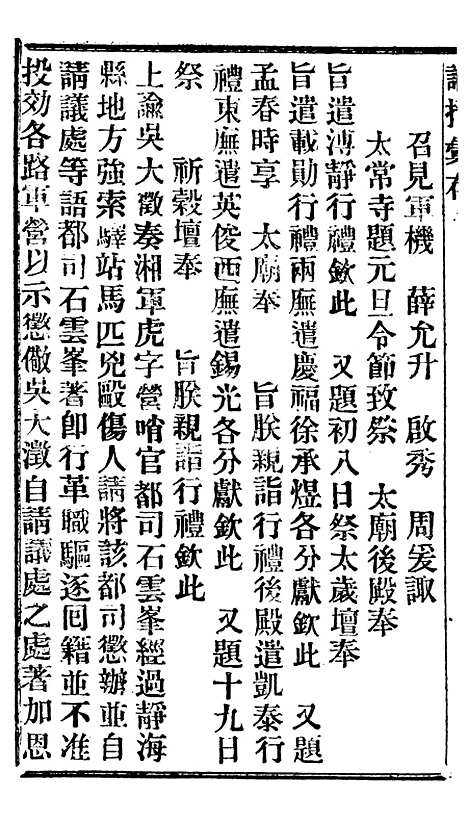 召見軍機　薛允升　啟秀　周爰諏
太常寺題元旦令節致祭　太廟後殿奉
旨遣溥靜行禮欽此　又題初八日祭太歲壇奉
旨遣載勛行禮兩廡遣慶福徐承煜各分獻欽此　又題
孟春時享　太廟奉　旨朕親詣行禮後殿遣凱泰行
禮東廡遣英俊西廡遣錫光各分獻欽此　又題十九日
祭　祈穀壇奉　旨朕親詣行禮欽此
上諭吳大澂奏湘軍虎字營哨官都司石雲峯經過靜海
縣地方強索驛站馬匹兇毆傷人請將該都司懲辦並自
請議處等語都司石雲峯著卽行革職驅逐囘籍並不准
投効各路軍營以示懲儆吳大澂自請議處之處著加恩